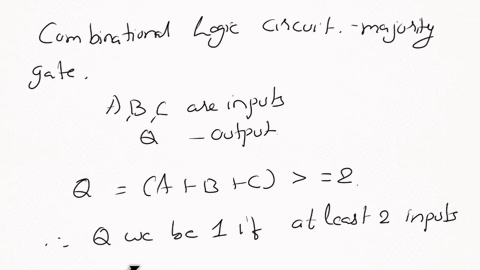 Combinational Logic circuit. - majority
gate.
A,B,C are inputs
Q - output
Q = (A+B+C) > = 2.
∴ Q wc be 1 if at least 2 inputs